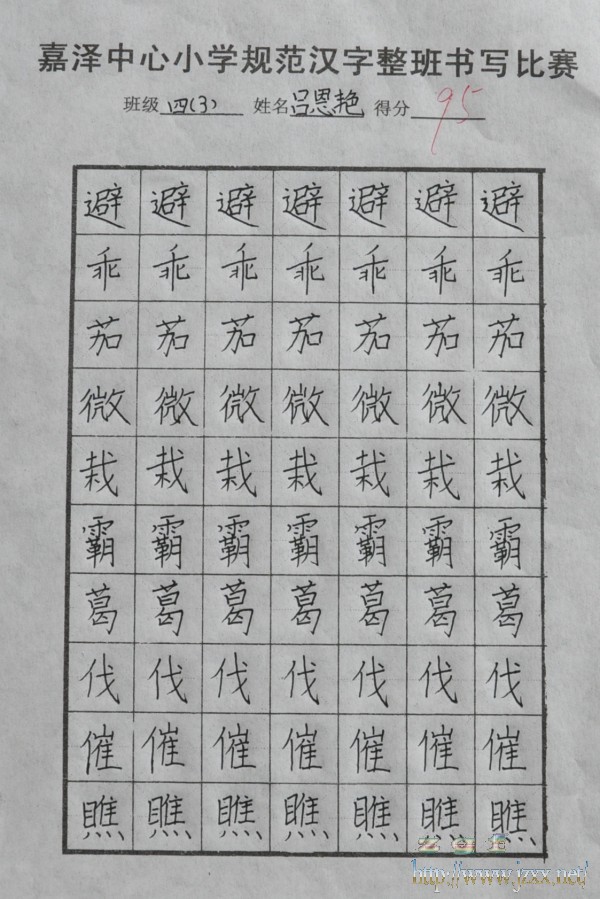 嘉泽中心小学规范汉字整班书写比赛
班级 四(3) 姓名 吕恩艳 得分 95
避 避 避 避 避 避 避
乖 乖 乖 乖 乖 乖 乖
茄 茄 茄 茄 茄 茄 茄
微 微 微 微 微 微 微
栽 栽 栽 栽 栽 栽 栽
霸 霸 霸 霸 霸 霸 霸
葛 葛 葛 葛 葛 葛 葛
伐 伐 伐 伐 伐 伐 伐
催 催 催 催 催 催 催
瞧 瞧 瞧 瞧 瞧 瞧 瞧
http://www.jzxx.net/